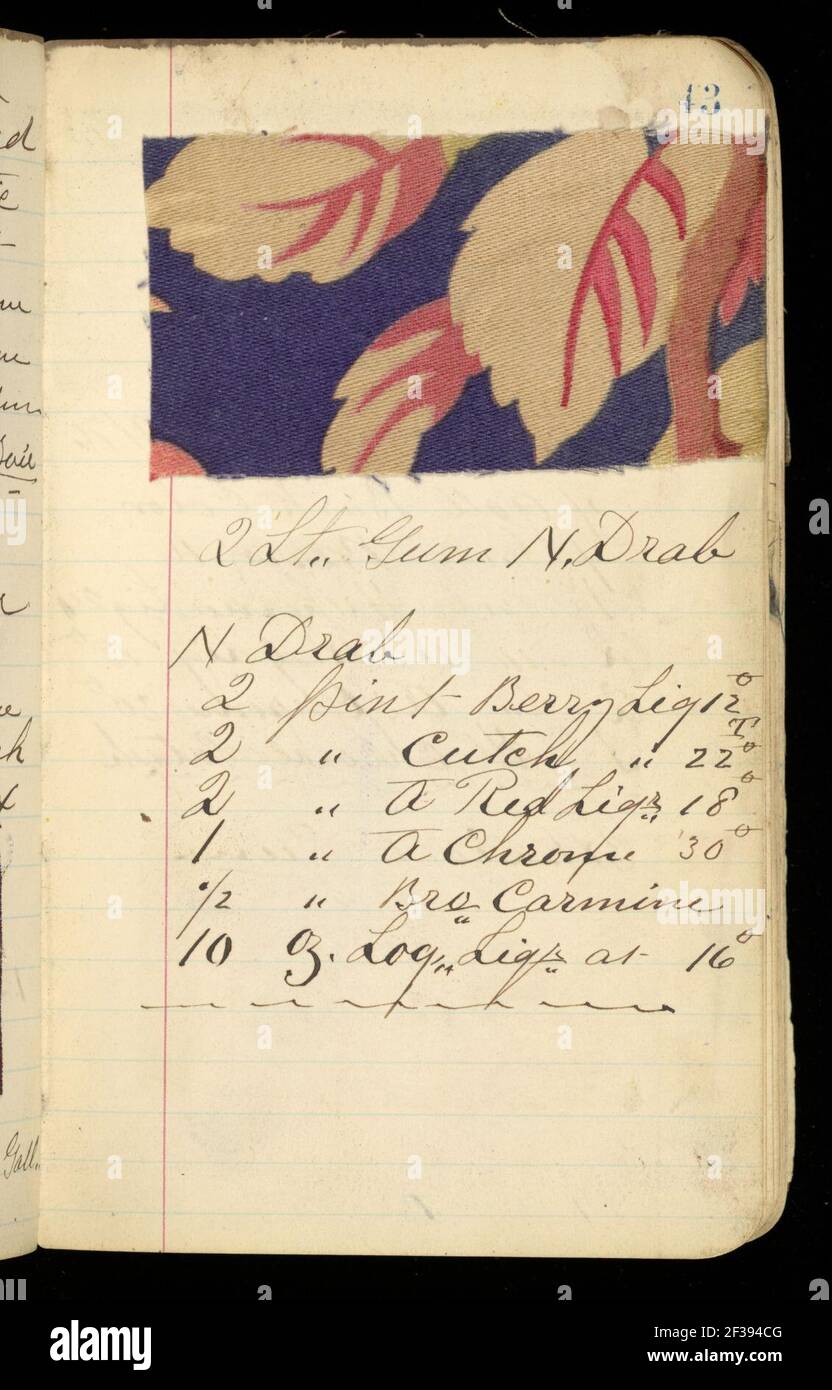 43
2 Lt. Gum N. Drab
N Drab
2 pint Berry Liq 12°
2 " Cutch " 22 T°
2 " A Red Liqr 18°
1 " A Chrome 30°
1/2 " Bro Carmine
10 oz. Log Liqr at 16°
ed
Gall
a
alamy
Image ID: 2F394CG
www.alamy.com